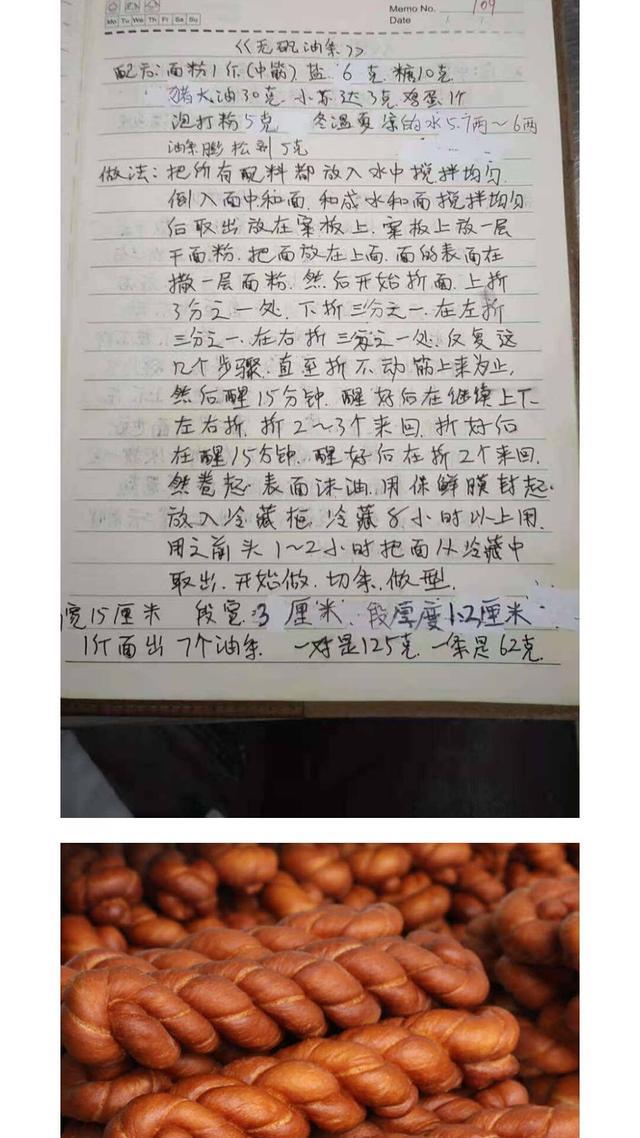 Memo No. 109
Mo Tu We Th Fr Sa Su
Date
《无矾油条》
配方:面粉1斤(中筋) 盐 6克 糖10克
猪大油30克 小苏达3克 鸡蛋1个
泡打粉5克 冬温夏凉的水5.7两～6两
油条膨松剂5克
做法:把所有配料都放入水中搅拌均匀
倒入面中和面.和成水和面搅拌均匀
后取出放在案板上.案板上放一层
干面粉.把面放在上面.面的表面在
撒一层面粉.然后开始折面.上折
3分之一处.下折三分之一.在左折
三分之一.在右折三分之一处.反复这
几个步骤.直至折不动筋上来为止,
然后醒15分钟.醒好后在继续上下
左右折.折2～3个来回.折好后
在醒15分钟.醒好后在折2个来回.
然卷起.表面沫油.用保鲜膜封起.
放入冷藏柜.冷藏8小时以上用.
用之前头1～2小时把面从冷藏中
取出.开始做.切条.做型.
宽15厘米 段宽:3厘米.段厚度1.2厘米
1斤面出7个油条. 一对是125克.一条是62克.